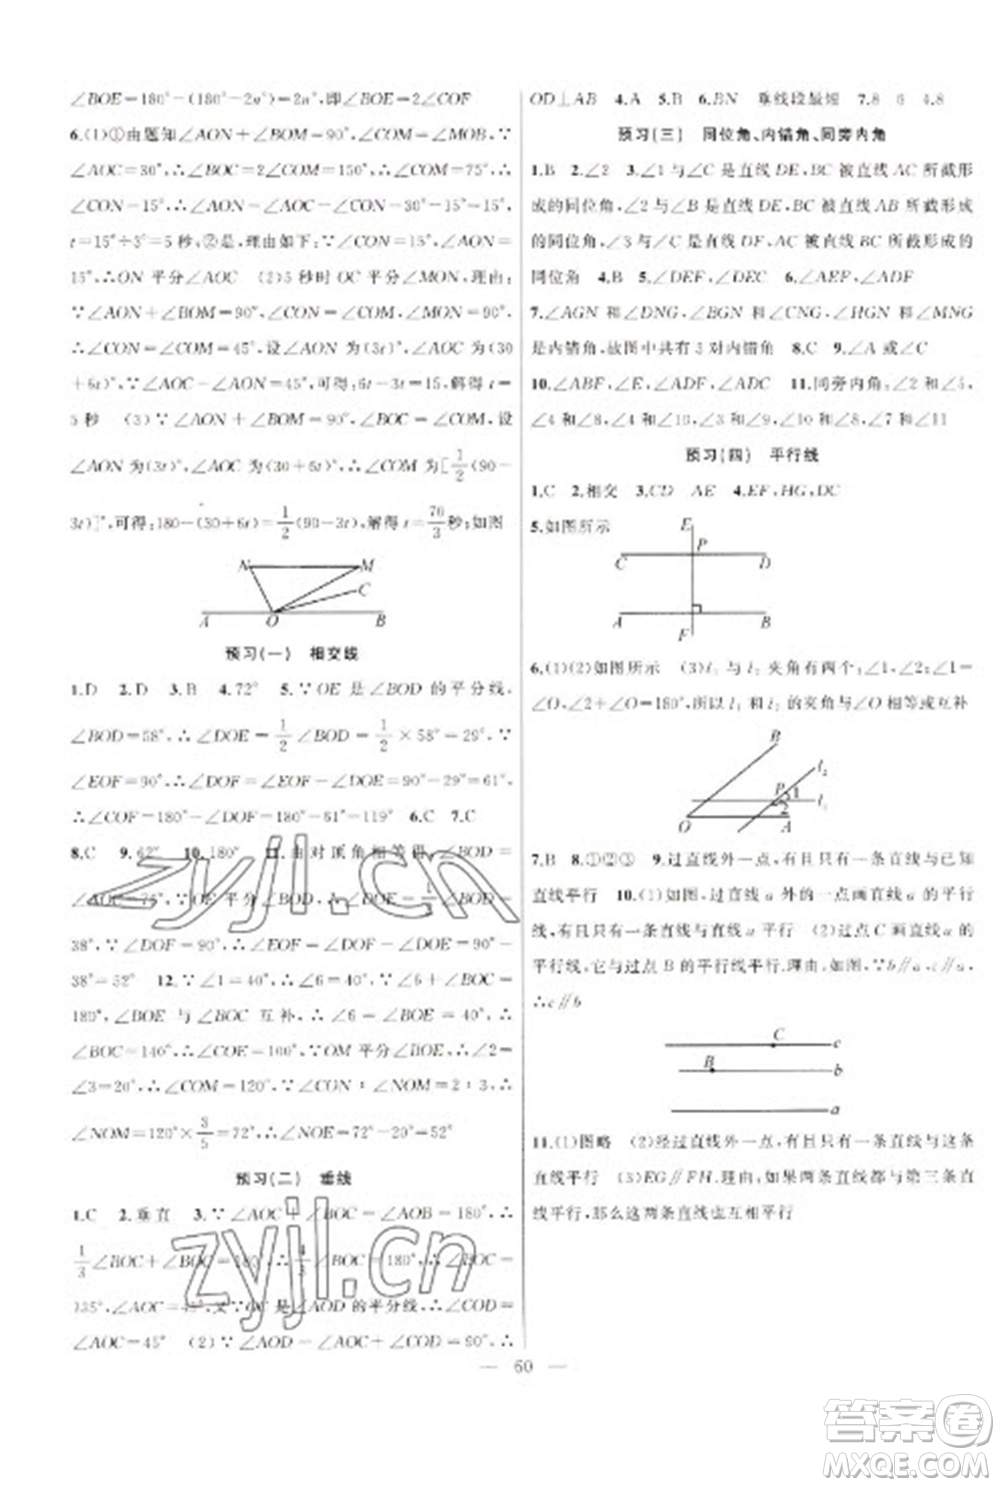 ∠BOE=180°-(180°-2n°)=2n°,即∠BOE=2∠COF
6.(1)①由题知∠AON+∠BOM=90°,∠COM=∠MOB,∵
∠AOC=30°,∴∠BOC=2∠COM=150°,∴∠COM=75°,∴
∠CON=15°,∴∠AON=∠AOC-∠CON=30°-15°=15°,
t=15°÷3°=5秒;②是,理由如下:∵∠CON=15°,∠AON=15°,
∴ON平分∠AOC (2)5秒时OC平分∠MON,理由:
∵∠AON+∠BOM=90°,∠CON=∠COM,∵∠MON=90°,
∴∠CON=∠COM=45°,设∠AON为(3t)°,∠AOC为(30
+6t)°,∵∠AOC-∠AON=45°,可得:6t-3t=15,解得t=
5秒 (3)∵∠AON+∠BOM=90°,∠BOC=∠COM,设
∠AON为(3t)°,∠AOC为(30+6t)°,∴∠COM为[1/2(90-
3t)]°,可得:180-(30+6t)=1/2(90-3t),解得t=70/3秒;如图
N M C A O B
预习(一) 相交线
1.D 2.D 3.B 4.72° 5.∵OE是∠BOD的平分线,
∠BOD=58°,∴∠DOE=1/2∠BOD=1/2×58°=29°,∵
∠EOF=90°,∴∠DOF=∠EOF-∠DOE=90°-29°=61°,
∴∠COF=180°-∠DOF=180°-61°=119° 6.C 7.C
8.C 9.62° 10.180° 11.由对顶角相等得∠BOD=
38°,∵∠DOF=90°,∴∠BOF=∠DOF-∠BOD=90°-
38°=52° 12.∵∠1=∠6=40°,∵∠BOE+∠BOC=
180°,∠BOE与∠BOC互补,∴∠6=∠BOE=40°,∴
∠BOC=140°,∴∠COE=100°,∵OM平分∠BOE,∴∠2=
∠3=20°,∴∠COM=120°,∵∠CON:∠NOM=2:3,∴
∠NOM=120°×3/5=72°,∴∠NOE=72°-20°=52°
预习(二) 垂线
1.C 2.垂直 3.∵∠AOC+∠BOC=∠AOB=180°,∴
1/3∠BOC+∠BOC=180°,∴4/3∠BOC=180°,∴∠BOC=
135°,∠AOC=45°,又∵OC是∠AOD的平分线,∴∠COD=
∠AOC=45° (2)∵∠AOD=∠AOC+∠COD=90°,∴
OD⊥AB 4.A 5.B 6.BN 垂线段最短 7.8 6 4.8
预习(三) 同位角、内错角、同旁内角
1.B 2.∠2 3.∠1与∠C是直线DE,BC被直线AC所截形
成的同位角,∠2与∠B是直线DE,BC被直线AB所截形成
的同位角,∠3与∠C是直线DF,AC被直线BC所截形成的
同位角 4.B 5.∠DEF,∠DEC 6.∠AEF,∠ADF
7.∠AGN和∠DNG,∠BGN和∠CNG,∠HGN和∠MNG
是内错角,故图中共有3对内错角 8.C 9.∠A或∠C
10.∠ABF,∠E,∠ADF和∠ABF 11.同旁内角:∠2和∠5,
∠4和∠8,∠4和∠10,∠3和∠9,∠2和∠9,∠7和∠11
预习(四) 平行线
1.C 2.相交 3.CD AE 4.EF,HG,DC
5.如图所示
E P C D A F B
6.(1)(2)如图所示 (3)l₁与l₂夹角有两个:∠1,∠2;∠1=
∠O,∠2+∠O=180°,所以l₁和l₂的夹角与∠O相等或互补
B l₂ P 1 2 l₁ O A
7.B 8.①②③ 9.过直线外一点,有且只有一条直线与已知
直线平行 10.(1)如图,过直线a外的一点画直线a的平行
线,有且只有一条直线与直线a平行 (2)过点C画直线a的
平行线,它与过点B的平行线平行.理由:如图,∵b∥a,c∥a,
∴c∥b
C c
B b
a
11.(1)图略 (2)经过直线外一点,有且只有一条直线与这条
直线平行 (3)EG∥FH,理由:如果两条直线都与第三条直
线平行,那么这两条直线也互相平行
— 60 —
zyjl.cn
zyjl.cn
答案卷
MXQE.COM